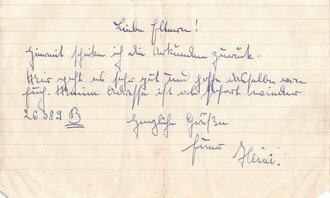 Liebe Eltern!
Hiermit schicke ich die Urkunden zurück.
Mir geht es sehr gut und hoffe dasselbe von
Euch. Meine Adresse ist ab sofort wieder
26389 B
Herzliche Grüße
Heini.